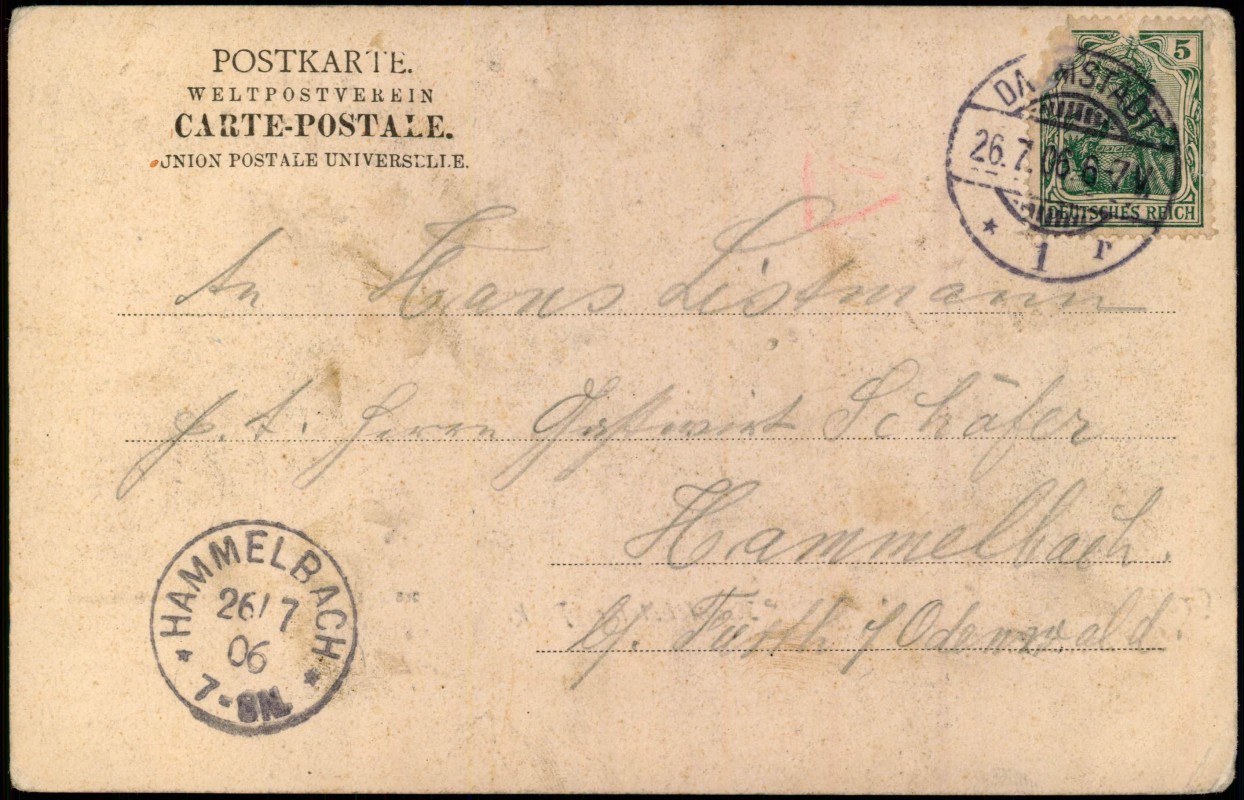 POSTKARTE.
WELTPOSTVEREIN
CARTE-POSTALE.
UNION POSTALE UNIVERSELLE.
5
DEUTSCHES REICH
DARMSTADT
26.7.06.6-7V.
* 1 r
An Hans Listmann
p. t. Herrn Gastwirt Schäfer
Hammelbach.
b/. Fürth i/Odenwald.
* HAMMELBACH *
26/7
06
7-8N.